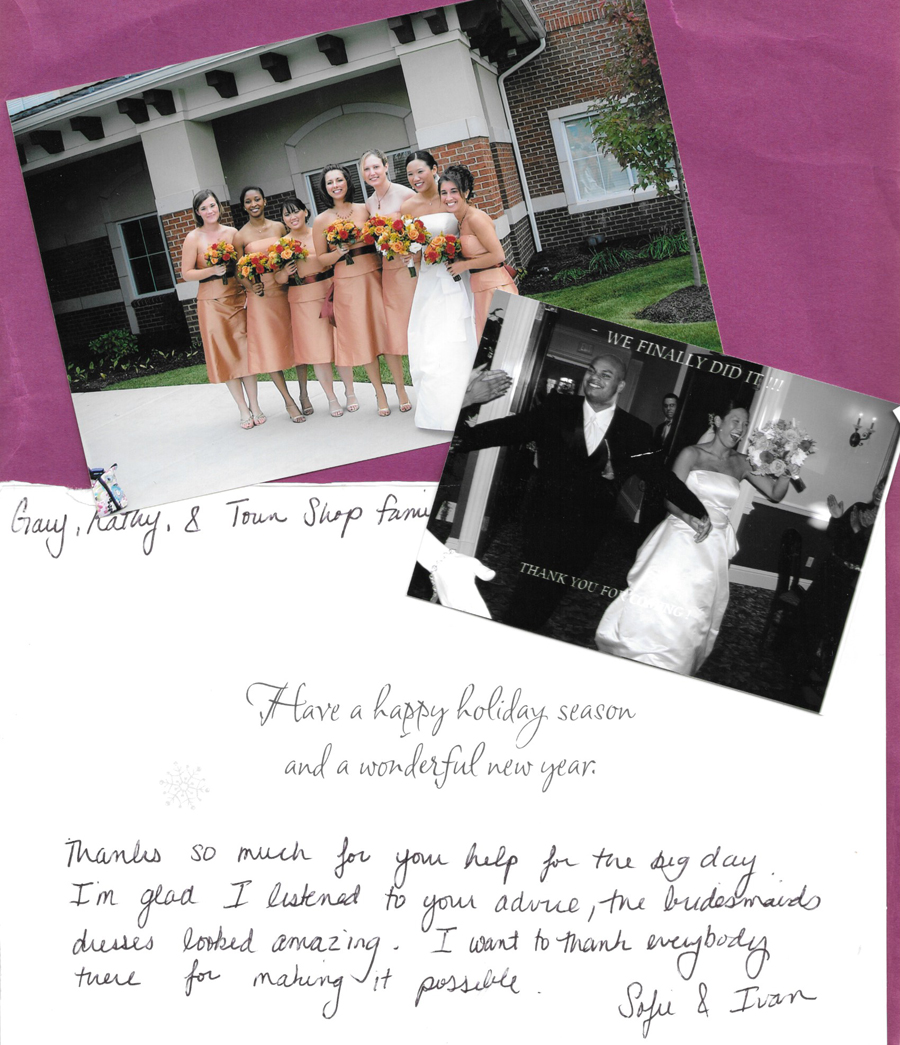 WE FINALLY DID IT !!!
THANK YOU FOR
Gary, Kathy, & Town Shop fami
Have a happy holiday season
and a wonderful new year.
Thanks so much for your help for the big day.
I'm glad I listened to your advice, the bridesmaids
dresses looked amazing. I want to thank everybody
there for making it possible.
Sofie & Ivan